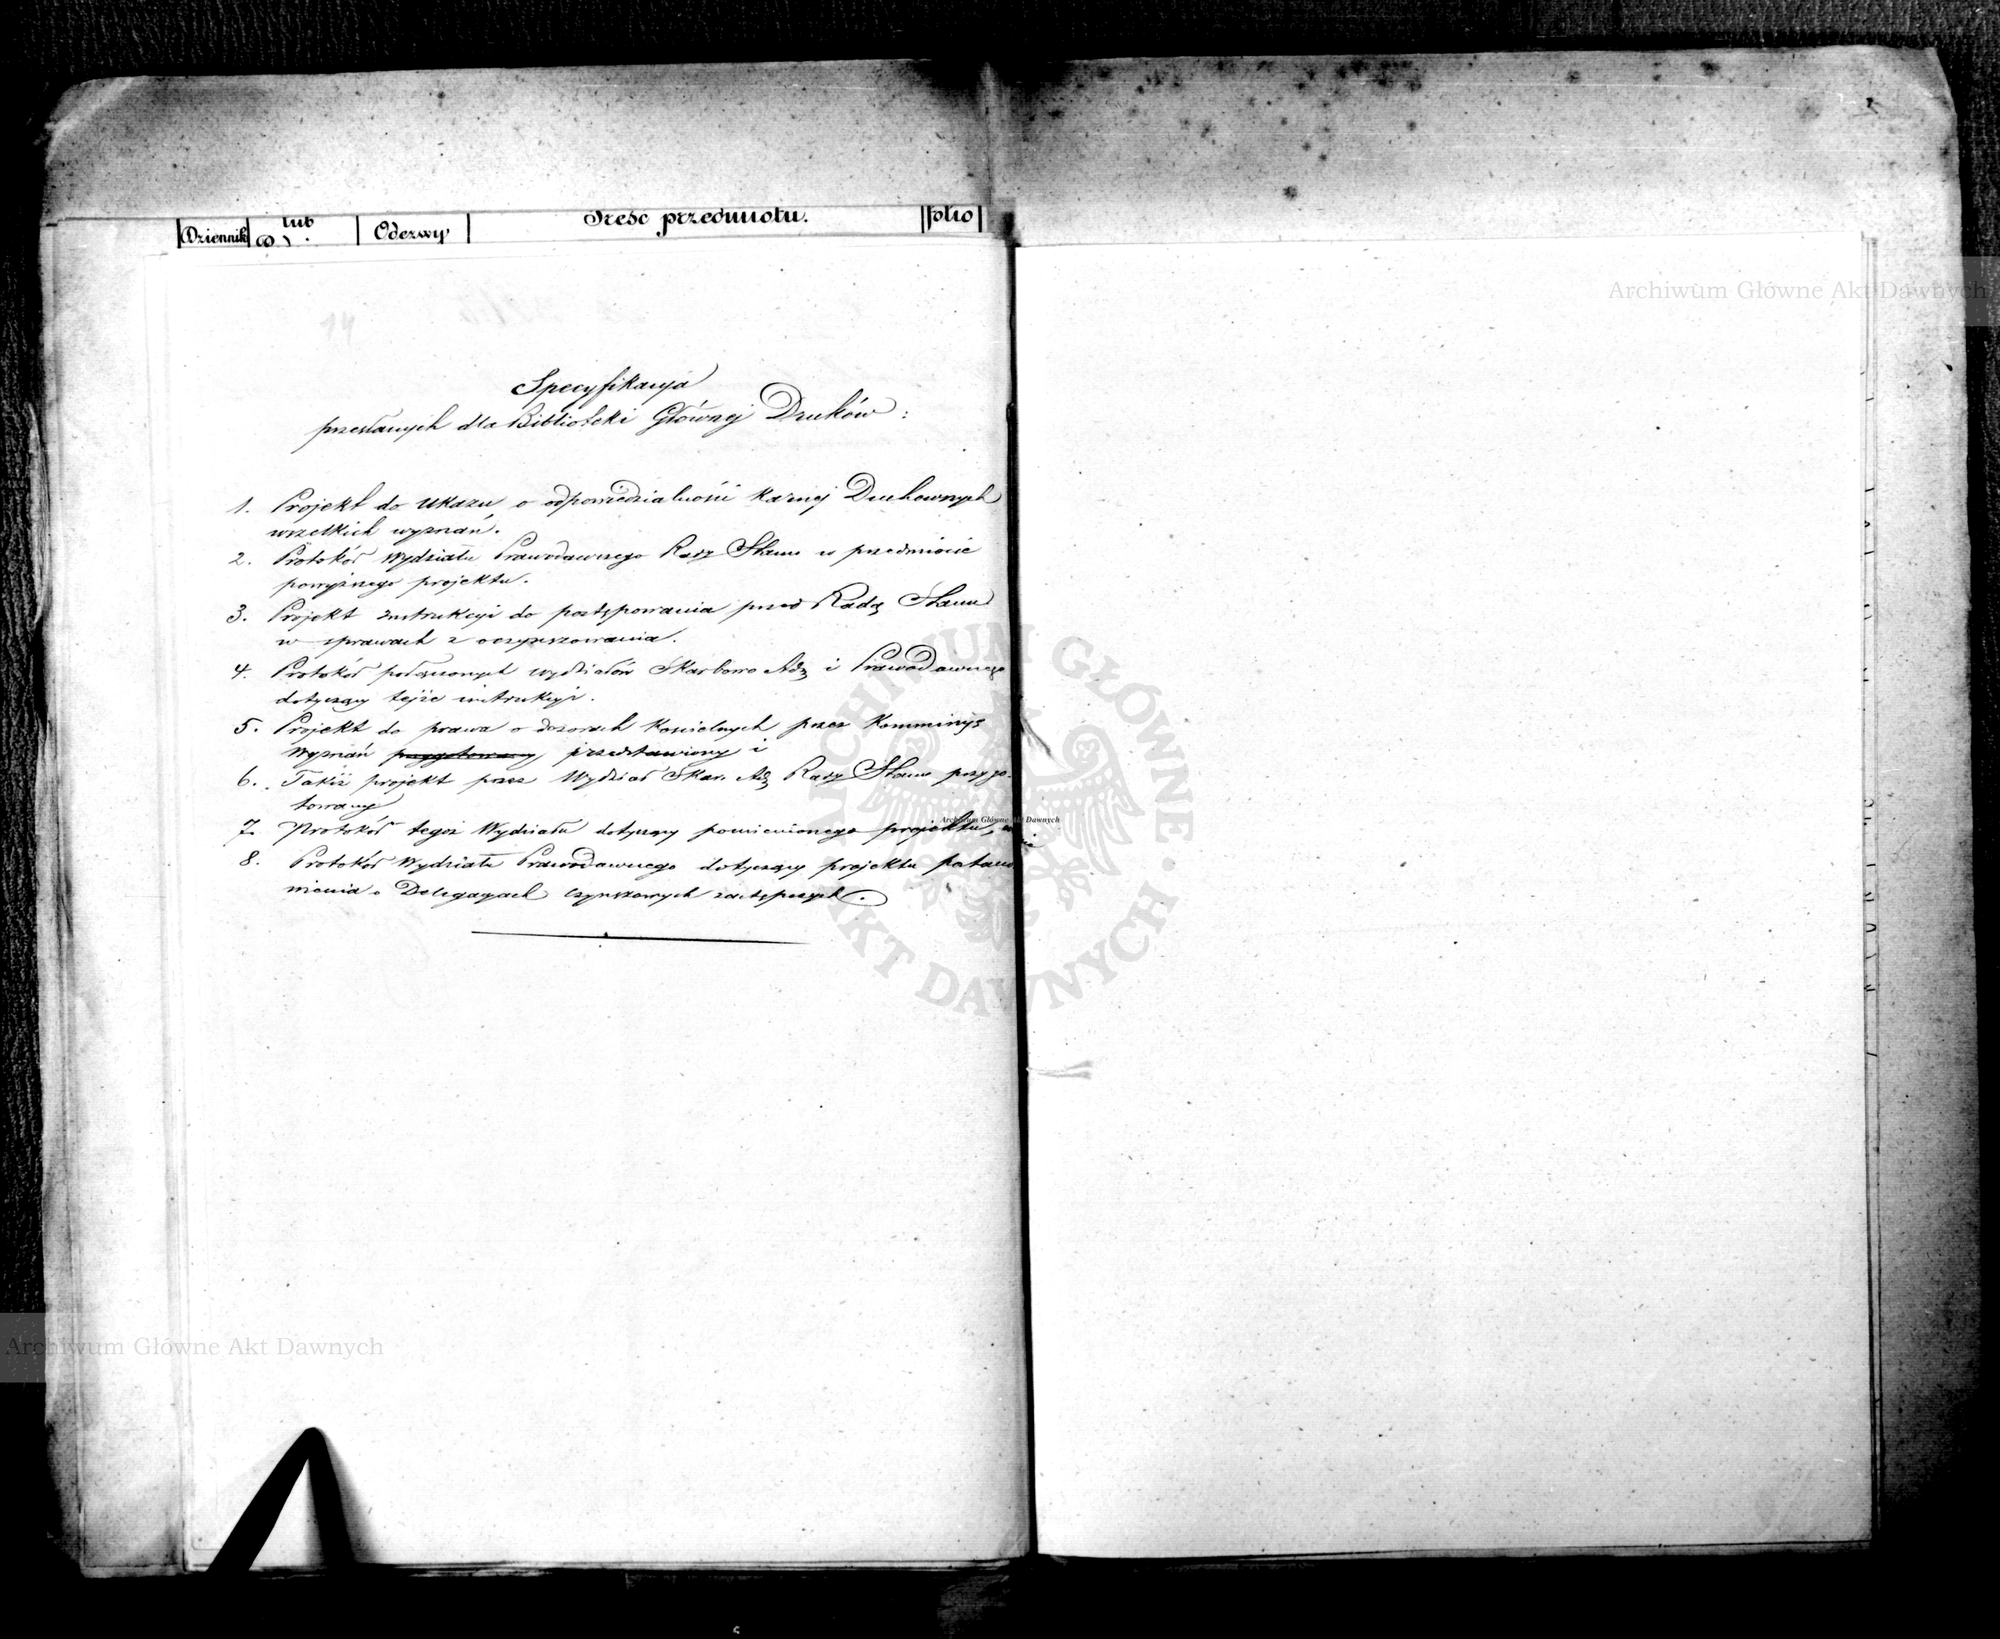 Dziennik
lub
Odezwy
Treść przedmiotu.
folio
14
Specyfikacya
przesłanych dla Biblioteki Głównej Druków:
1. Projekt do Ukazu o odpowiedzialności karnej Duchownych
wszelkich wyznań.
2. Protokół Wydziału Prawodawczego Rady Stanu w przedmiocie
powyższego projektu.
3. Projekt Instrukcyi do postępowania przed Radą Stanu
w sprawach z oczynszowania.
4. Protokół połączonych wydziałów Skarbowo Adm i Prawodawczego
dotyczący tejże instrukcyi.
5. Projekt do prawa o dozorach kościelnych przez Kommissyę
Wyznań przygotowany przedstawiony i
6. Takiż projekt przez Wydział Skar. Adm Rady Stanu przygo-
towany
7. Protokół tegoż Wydziału dotyczący powienionego projektu,
8. Protokół Wydziału Prawodawczego dotyczący projektu postano
wienia o Delegacyach czynszowych zastępczych.
Archiwum Główne Akt Dawnych
ARCHIWUM GŁÓWNE AKT DAWNYCH
Archiwum Główne Akt Dawnych
Archiwum Główne Akt Dawnych